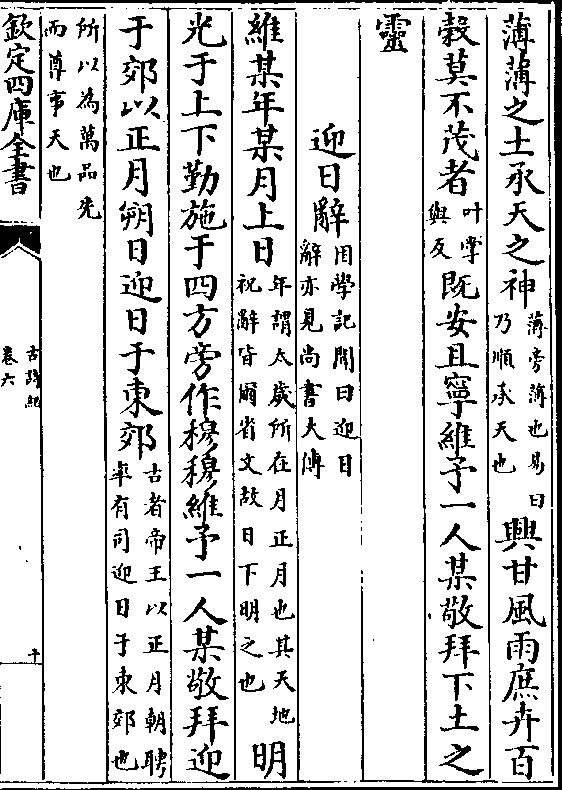 薄薄之土承天之神薄旁薄也易曰乃順承天也興甘風雨庶卉百
穀莫不茂者叶掌與反既安且寧維予一人某敬拜下土之
靈
迎日辭困學記聞曰迎日辭亦見尚書大傳
維某年某月上日年謂太歲所在月正月也其天地祝辭皆爾省文故日下明之也明
光于上下勤施于四方旁作穆穆維予一人某敬拜迎
于郊以正月朔日迎日于東郊古者帝王以正月朝聘率有司迎日于東郊也
所以為萬品先而尊事天也
欽定四庫全書
古詩紀
卷六
十